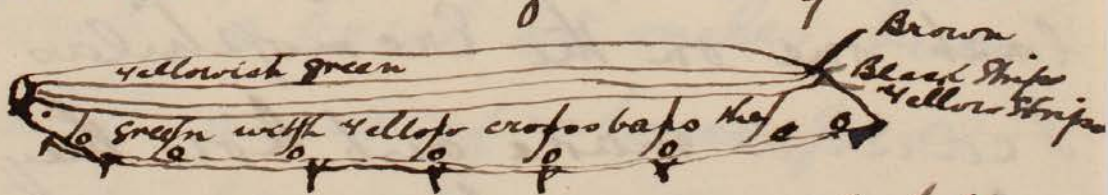 Brown
Yellowish green
Black Stripe
Yellow Stripe
green with Yellow crossbars